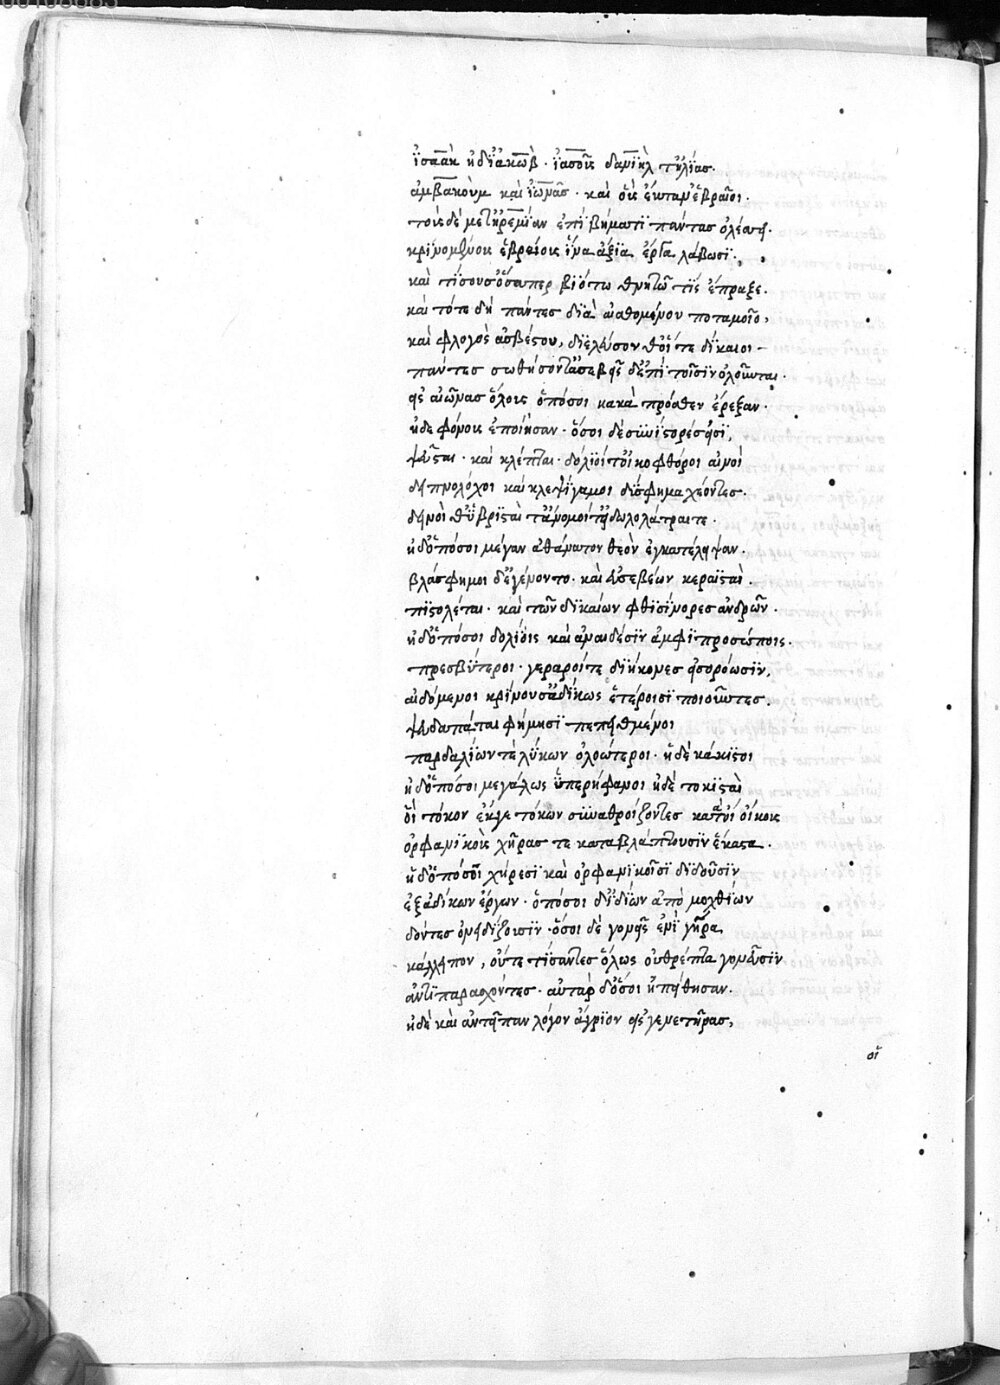 ἰσαὰκ ἠδ' ἰακὼβ · ἰασοῦς δανιὴλ τ' ἠλίας ·
ἀμβακοὺμ καὶ ἰωνᾶς · καὶ οὓς ἔκταν ἑβραῖοι ·
τοὺς δὲ μεθ' ἱερεμίαν ἐπὶ βήματι πάντας ὀλέσει ·
κρινομένους ἑβραίους ἵνα ἄξια ἔργα λάβωσι ·
καὶ τίσουσ' ὅσαπερ βιότω θνητῶ τὶς ἔπραξε ·
καὶ τότε δὴ πάντες διὰ αἰθομένου ποταμοῖο ,
καὶ φλογὸς ἀσβέστου , διελεύσονθ' οἵ τε δίκαιοι –
πάντες σωθήσοντ' ἀσεβεῖς δ' ἐπὶ τοῖσιν ὀλοῦνται ·
εἰς αἰῶνας ὅλους ὁπόσοι κακὰ πρόσθεν ἔρεξαν ·
ἠδὲ φόνους ἐποίησαν · ὅσοι δὲ συνίστορές εἰσι ,
ψεῦσται · καὶ κλέπται · δόλιοί τ' οἰκοφθόροι αἰνοὶ
δειπνολόχοι καὶ κλεψίγαμοι δύσφημα χέοντες ·
δεινοὶ θ' ὑβρισταὶ τ' ἄνομοί τ' εἰδωλολάτραι τε ·
ἠδ' ὁπόσοι μέγαν ἀθάνατον θεὸν ἐγκατέλειψαν ·
βλάσφημοι δ' ἐγένοντο · καὶ εὐσεβέων κεραϊσταὶ ·
πιστολέται · καὶ τῶν δικαίων φθισίνορες ἀνδρῶν ·
ἠδ' ὁπόσοι δολίοις καὶ ἀναιδέσιν ἀμφιπροσώποις ·
πρεσβύτεροι · γεραροί τε διήκονες εἰσορόωσιν ,
αἰδόμενοι κρίνουσ' ἀδίκως ἑτέροισι ποιοῦντες ·
ψευδαπάται φήμησι πεπειθμένοι
παρδαλίων τε λύκων ὀλοώτεροι · ἠδὲ κάκιστοι
ἠδ' ὁπόσοι μεγάλως ὑπερήφανοι ἠδὲ τοκισταὶ
οἳ τόκον ἔκγε τόκων συναθροίζοντες κατὰ οἴκους
ὀρφανικοὺς χήρας τε καταβλάπτουσιν ἕκαστα ·
ἠδ' ὁπόσοι χήρεσι καὶ ὀρφανικοῖσι διδοῦσιν
ἐξ ἀδίκων ἔργων · ὁπόσοι δ' ἰδίων ἀπὸ μοχθίων
δόντες ὀνειδίζουσιν · ὅσοι δὲ γονεῖς ἐνὶ γήρα ,
κάλλιπον , οὔτε τίσαντες ὅλως οὐ θρέπτα γονεῦσιν
ἀντιπαρασχόντες · αὐτὰρ δ' ὅσοι ἠπείθησαν ·
ἠδὲ καὶ ἀντεῖπαν λόγον ἄγριον εἰς γενετῆρας ,
οἵ